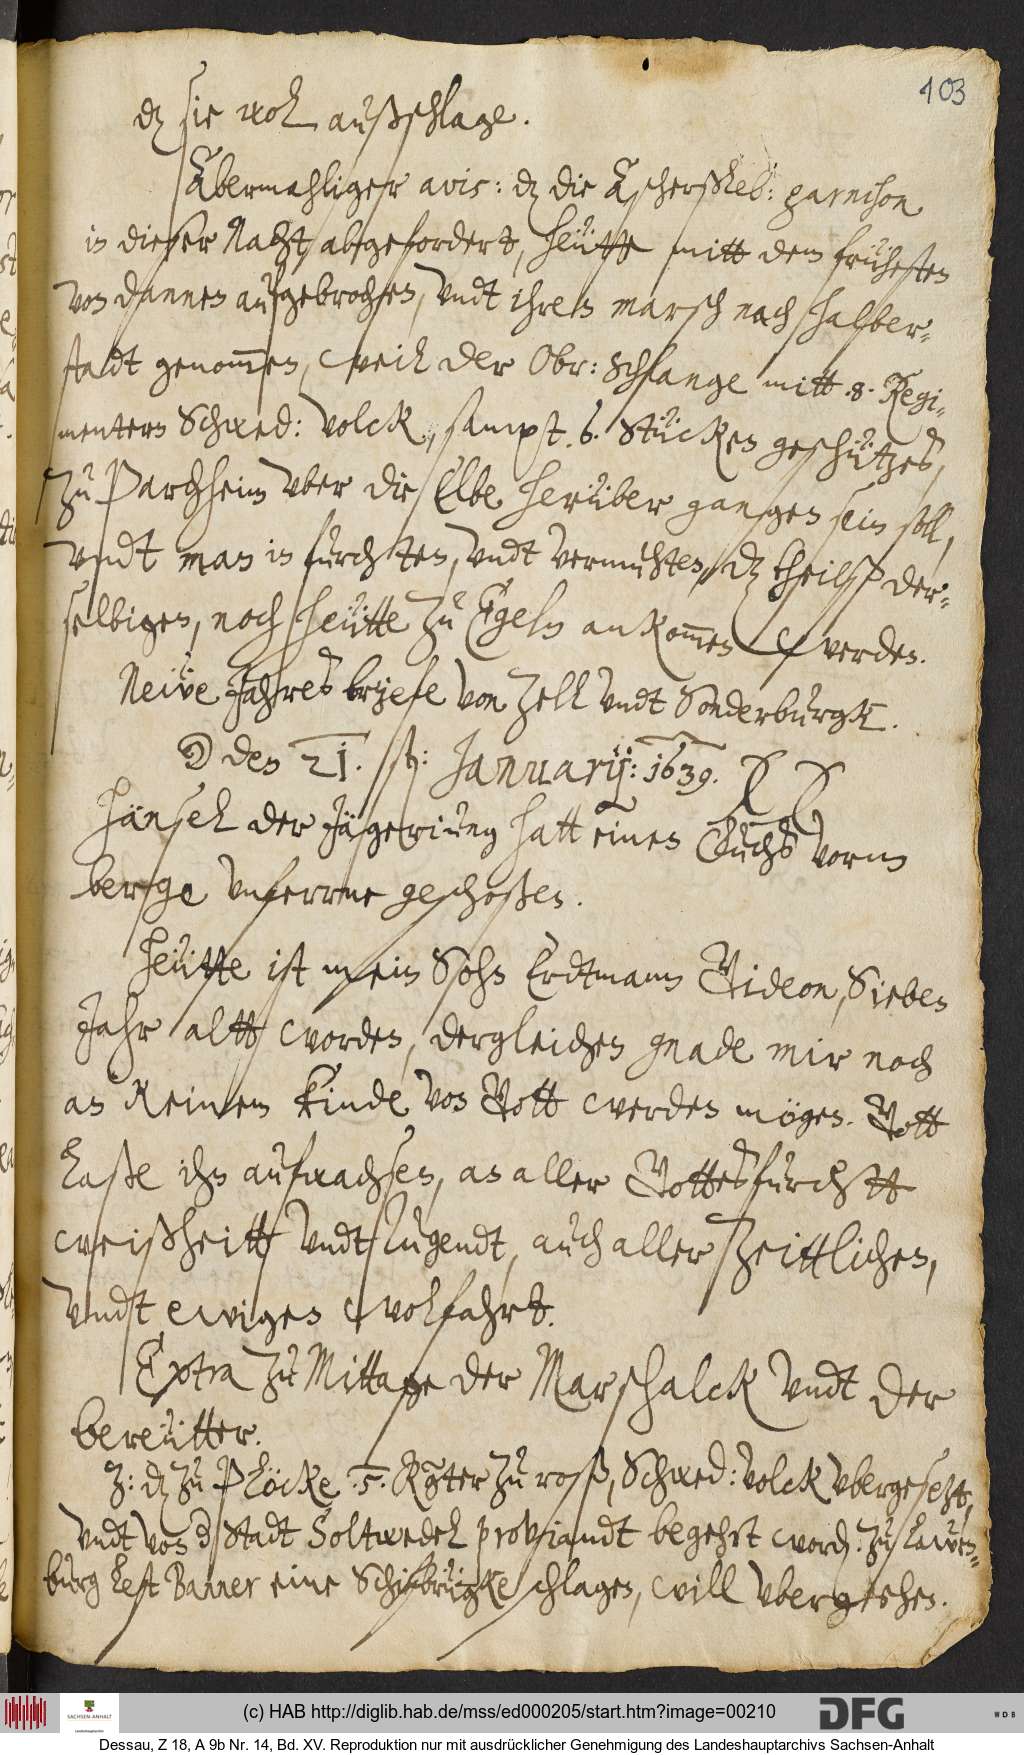 103
dz sie wol außschlage.
Abermahliger avis: dz die Ascherßleb: garnison
in dieser Nacht, abgefordert, heütte mitt dem frühesten
von dannen aufgebrochen, undt ihren marsch nach Halber-
stadt genom̅en, weil der Obr: Schlange mitt .8. Regi-
mentern Schwed: volck, sampt .6. Stücken geschützes,
zu Parchheim uber die Elbe herüber gangen sein soll,
undt man in furchten, undt vermuhten, dz theilß der-
selbigen, noch heütte zu Egeln ankom̅en werden.
Neüe Jahres briefe von Zell undt Sonderburgk.
☽ den 21. sten: Januarij: 1639.
Hänsel der Jägerjung hatt einen Luchß vorm
berge unferrne geschoßen.
Heütte ist mein Sohn Erdtmann Gideon, Sieben
Jahr altt worden, dergleichen gnade mir noch
an keinem Kinde von Gott werden mögen. Gott
laße ihn aufwachsen, an aller Gottesfurchtt
weißheitt undt Tugendt, auch aller Zeittlichen,
undt ewigen wolfahrt.
Extra zu Mittage der Marschalck undt der
bereütter.
Z: dz zu Plöcke .5. Regter zu roß, Schwed: volck ubergesetzt,
undt von d Stadt Soltwedel proviandt begehrt word. Zu Lawen-
burg left Banner eine Schifbrügke schlagen, will ubergehen.
(c) HAB http://diglib.hab.de/mss/ed000205/start.htm?image=00210
SACHSEN-ANHALT
DFG
WDB
Dessau, Z 18, A 9b Nr. 14, Bd. XV. Reproduktion nur mit ausdrücklicher Genehmigung des Landeshauptarchivs Sachsen-Anhalt